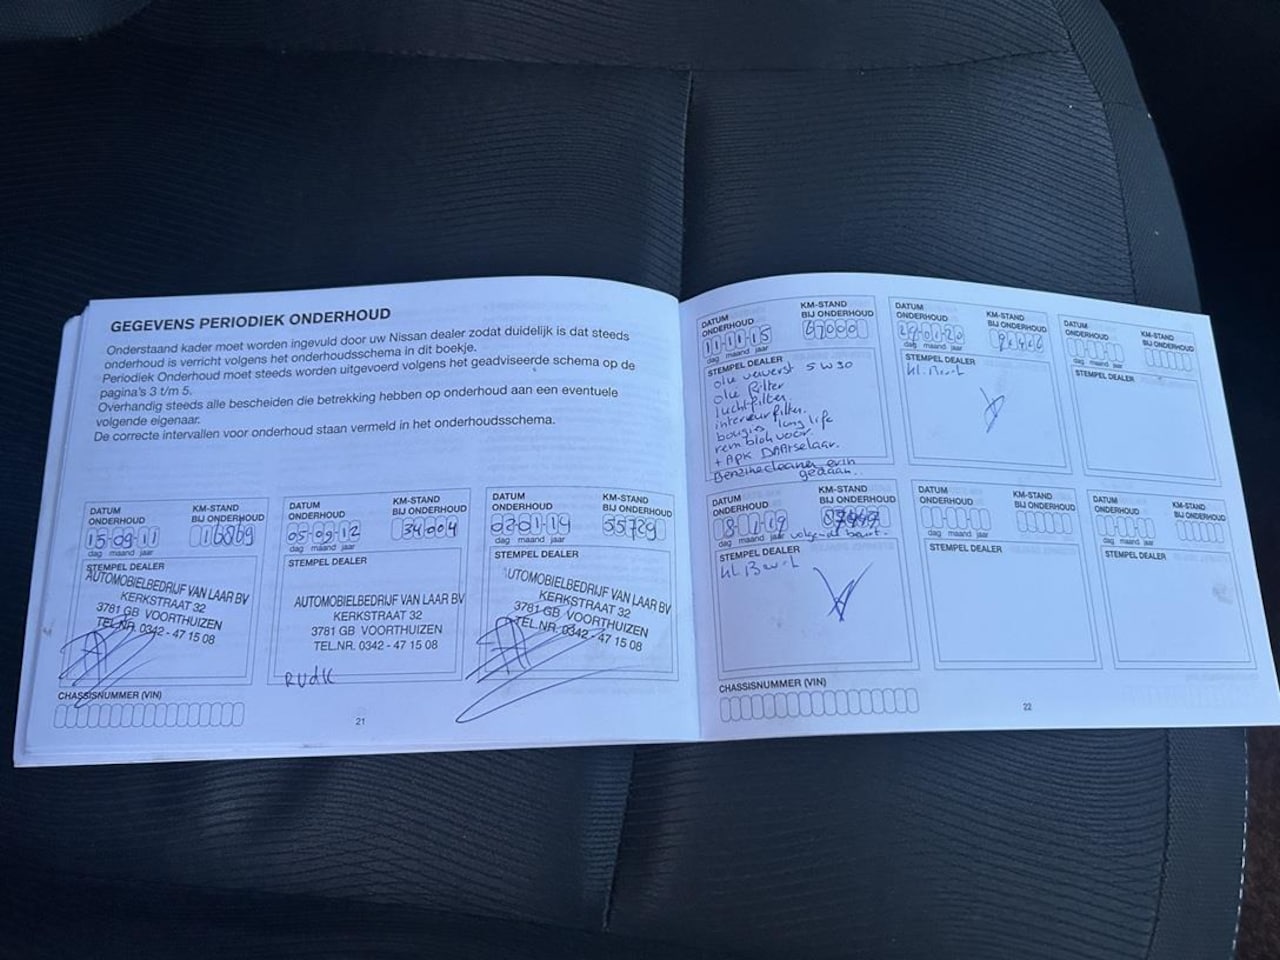 GEGEVENS PERIODIEK ONDERHOUD
Onderstaand kader moet worden ingevuld door uw Nissan dealer zodat duidelijk is dat steeds
onderhoud is verricht volgens het onderhoudsschema in dit boekje.
Periodiek Onderhoud moet steeds worden uitgevoerd volgens het geadviseerde schema op de
pagina's 3 t/m 5.
Overhandig steeds alle bescheiden die betrekking hebben op onderhoud aan een eventuele
volgende eigenaar.
De correcte intervallen voor onderhoud staan vermeld in het onderhoudsschema.
DATUM ONDERHOUD
KM-STAND BIJ ONDERHOUD
15-09-11
16869
dag maand jaar
STEMPEL DEALER
AUTOMOBIELBEDRIJF VAN LAAR BV
KERKSTRAAT 32
3781 GB VOORTHUIZEN
TEL.NR. 0342 - 47 15 08
CHASSISNUMMER (VIN)
DATUM ONDERHOUD
KM-STAND BIJ ONDERHOUD
05-09-12
34004
dag maand jaar
STEMPEL DEALER
AUTOMOBIELBEDRIJF VAN LAAR BV
KERKSTRAAT 32
3781 GB VOORTHUIZEN
TEL.NR. 0342 - 47 15 08
RUDK
DATUM ONDERHOUD
KM-STAND BIJ ONDERHOUD
02-01-14
55729
dag maand jaar
STEMPEL DEALER
AUTOMOBIELBEDRIJF VAN LAAR BV
KERKSTRAAT 32
3781 GB VOORTHUIZEN
TEL.NR. 0342 - 47 15 08
21
DATUM ONDERHOUD
KM-STAND BIJ ONDERHOUD
11-11-15
67000
dag maand jaar
STEMPEL DEALER
olie ververst 5W30
olie filter
luchtfilter.
interieurfilter.
bougies long life
remblok voor
+ APK
Benzinecleaner erin
gedaan..
DATUM ONDERHOUD
KM-STAND BIJ ONDERHOUD
dag maand jaar
STEMPEL DEALER
kl. Beurt
DATUM ONDERHOUD
KM-STAND BIJ ONDERHOUD
dag maand jaar
STEMPEL DEALER
DATUM ONDERHOUD
KM-STAND BIJ ONDERHOUD
dag maand jaar volgende beurt.
STEMPEL DEALER
kl. Beurt
CHASSISNUMMER (VIN)
DATUM ONDERHOUD
KM-STAND BIJ ONDERHOUD
dag maand jaar
STEMPEL DEALER
DATUM ONDERHOUD
KM-STAND BIJ ONDERHOUD
dag maand jaar
STEMPEL DEALER
22